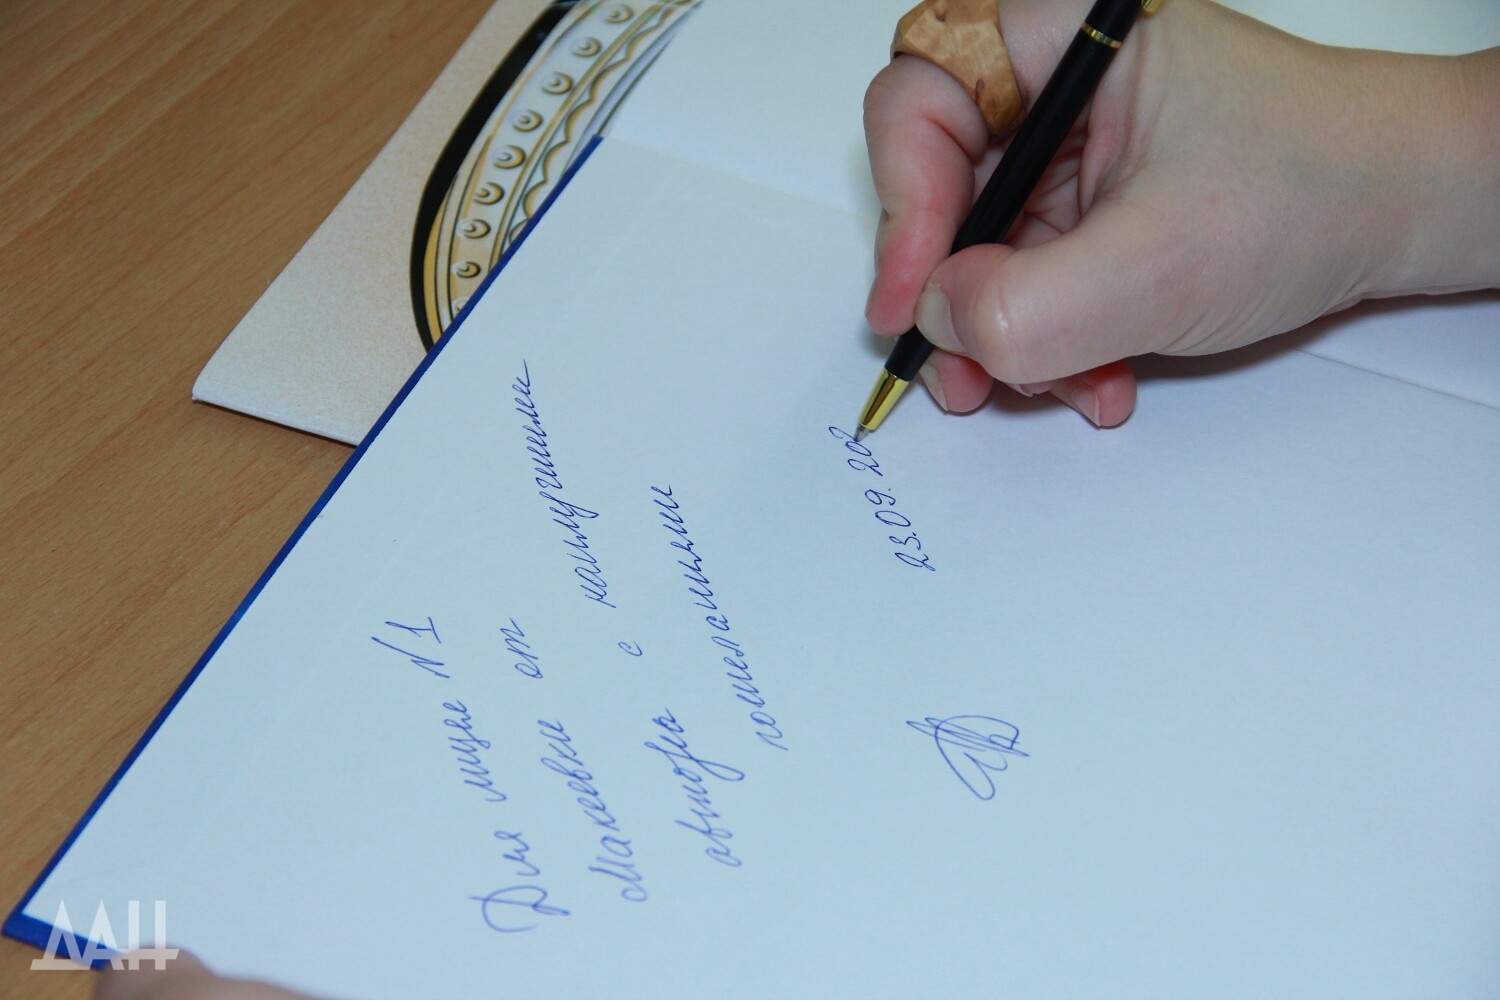 Для лицея №1
Макеевки от
автора с наилучшими
пожеланиями
23.09.202
ДАН